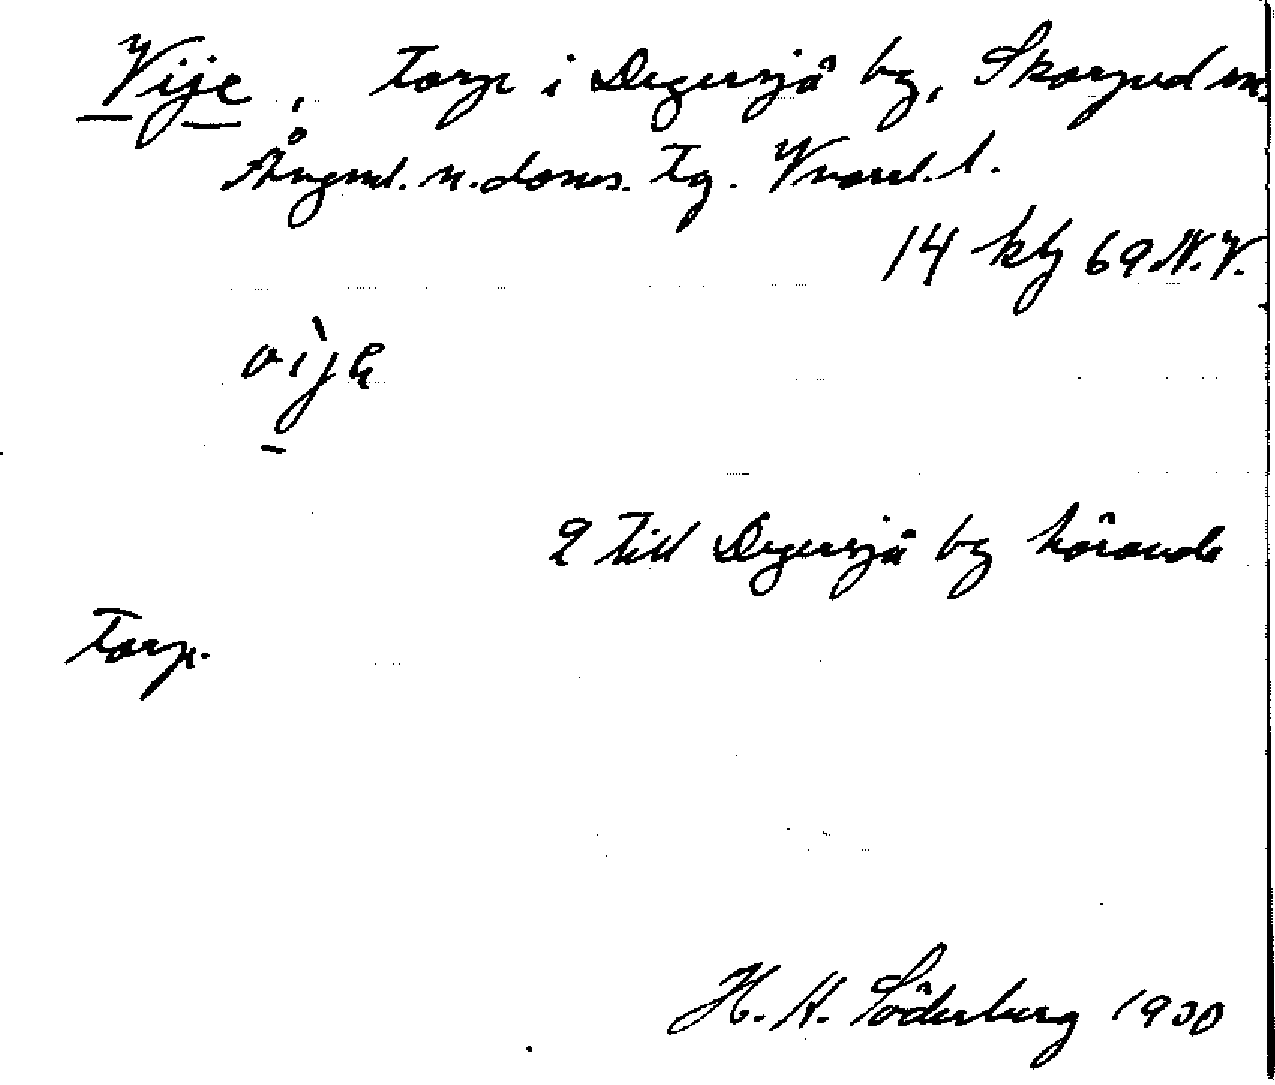 Vije, torp i Degersjö by, Skorped sn.
Ångml. n. doms. tg. Vnorrl. l.
14 kbl 69 N.V.
vìje
2 till Degersjö by hörande
torp.
H. H. Söderberg 1930